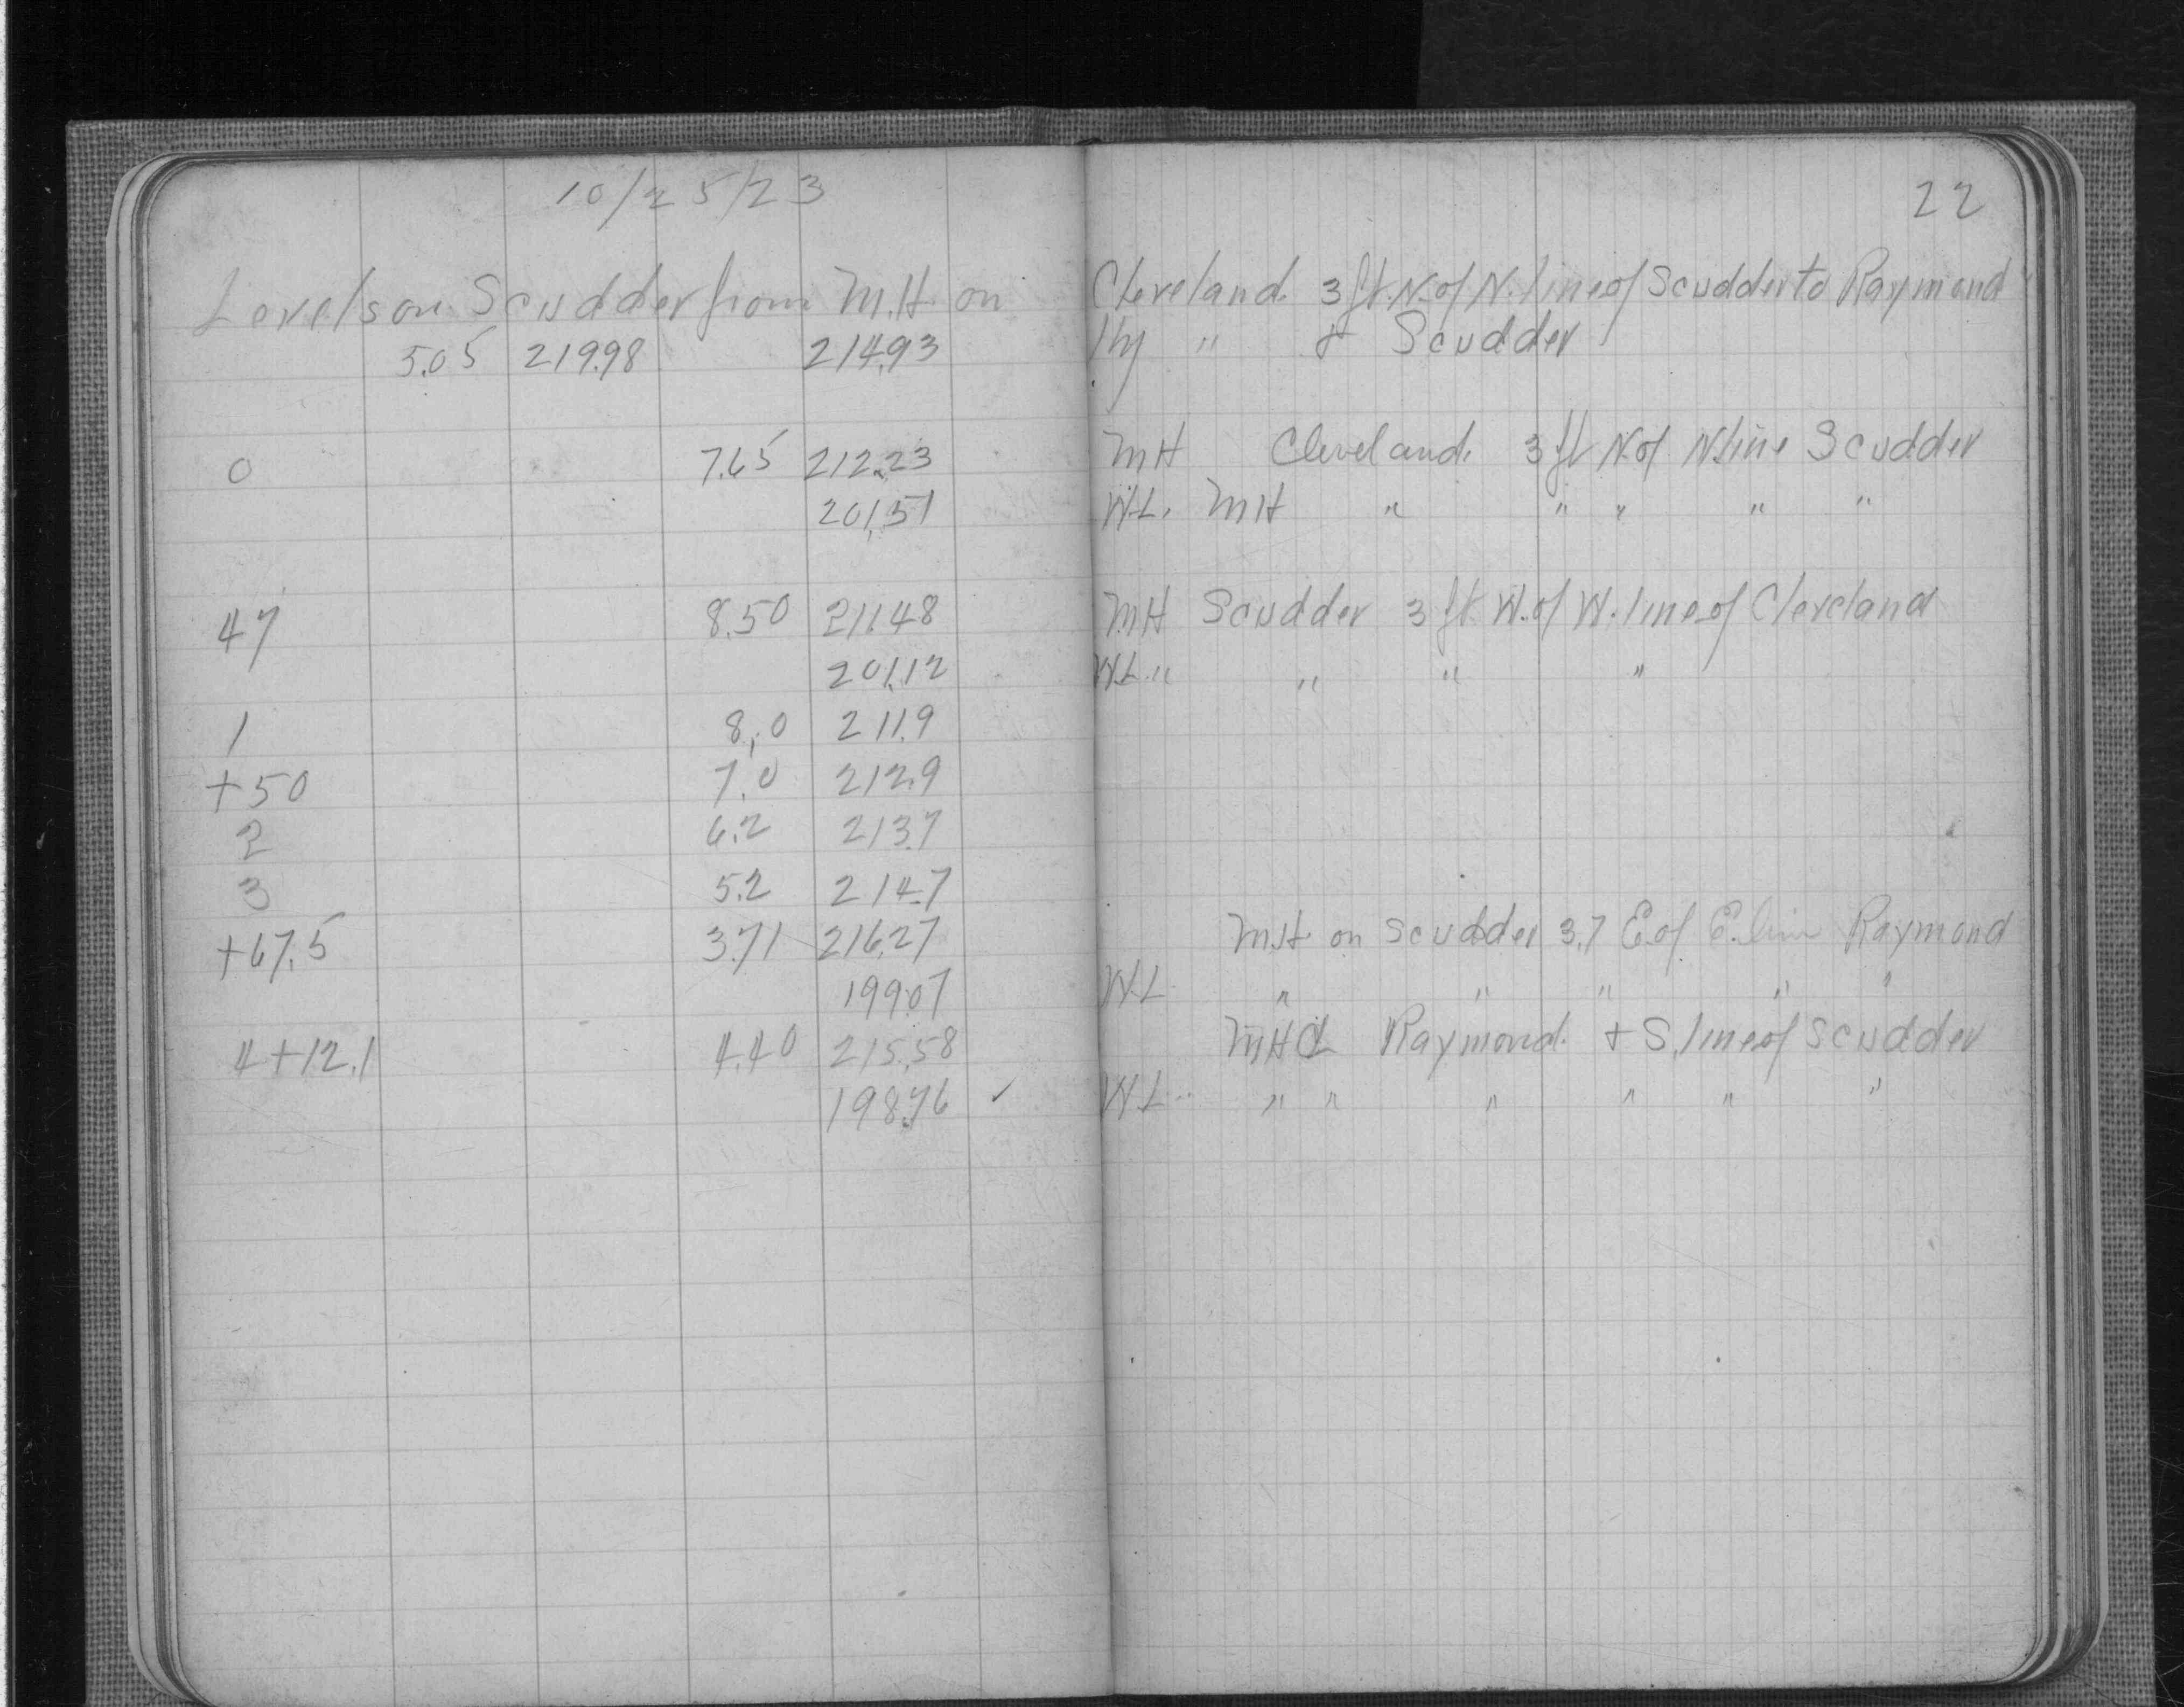 10/25/23
22
Levels on Scudder from M.H. on Cleveland. 3 ft. N. of N. line of Scudder to Raymond
5.05 219.98 214.93 Hy " & Scudder
0 7.65 212.23 MH Cleveland. 3 ft N of N line Scudder
201.51 W.L. MH " " " " "
47 8.50 211.48 MH Scudder 3 ft W. of W. line of Cleveland
201.12 W.L. " " " "
1 8.0 211.9
+50 7.0 212.9
2 6.2 213.7
3 5.2 214.7
+67.5 3.71 216.27 M.H. on Scudder 3.7 E. of E. line Raymond
199.07 W.L. " " " " "
4+12.1 4.40 215.58 MH ℄ Raymond. + S. line of Scudder
198.76 ✓ W.L. " " " " " "